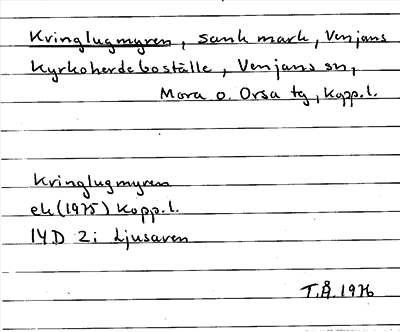 Kringlugmyren, sank mark, Venjans
Kyrkoherdeboställe, Venjans sn,
Mora o. Orsa tg, Kopp.l.
Kringlugmyren
ek (1975) Kopp.l.
14D 2i Ljusaren
T.Å. 1976